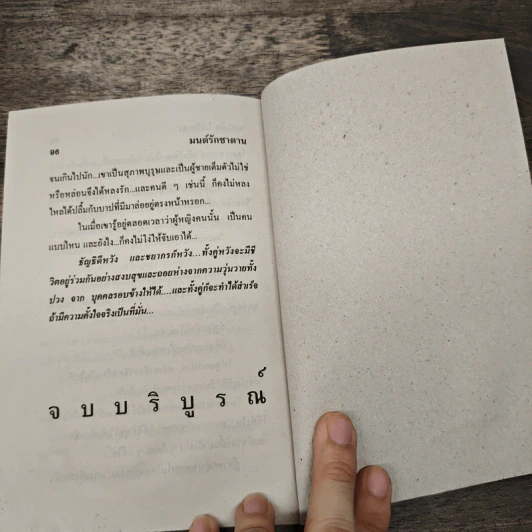 ๑๖ มนต์รักซาตาน
จนเกินไปนัก...เขาเป็นสุภาพบุรุษและเป็นผู้ชายเต็มตัวไม่ใช่
หรือหล่อนจึงได้หลงรัก...และคนดี ๆ เช่นนี้ ก็คงไม่หลง
ใหลได้ปลื้มกับบาปที่มีมาล่ออยู่ตรงหน้าหรอก...
ในเมื่อเขารู้อยู่ตลอดเวลาว่าผู้หญิงคนนั้น เป็นคน
แบบไหน และยังไง...ก็คงไม่โง่ให้จับเอาได้...
ธัญธิดีหวัง และชยากรก็หวัง...ทั้งคู่หวังจะมีชี
วิตอยู่ร่วมกันอย่างสงบสุขและถอยห่างจากความวุ่นวายทั้ง
ปวง จาก บุคคลรอบข้างให้ได้....และทั้งคู่ก็จะทำได้สำเร็จ
ถ้ามีความตั้งใจจริงเป็นที่มั่น...
จ บ บ ริ บู ร ณ์